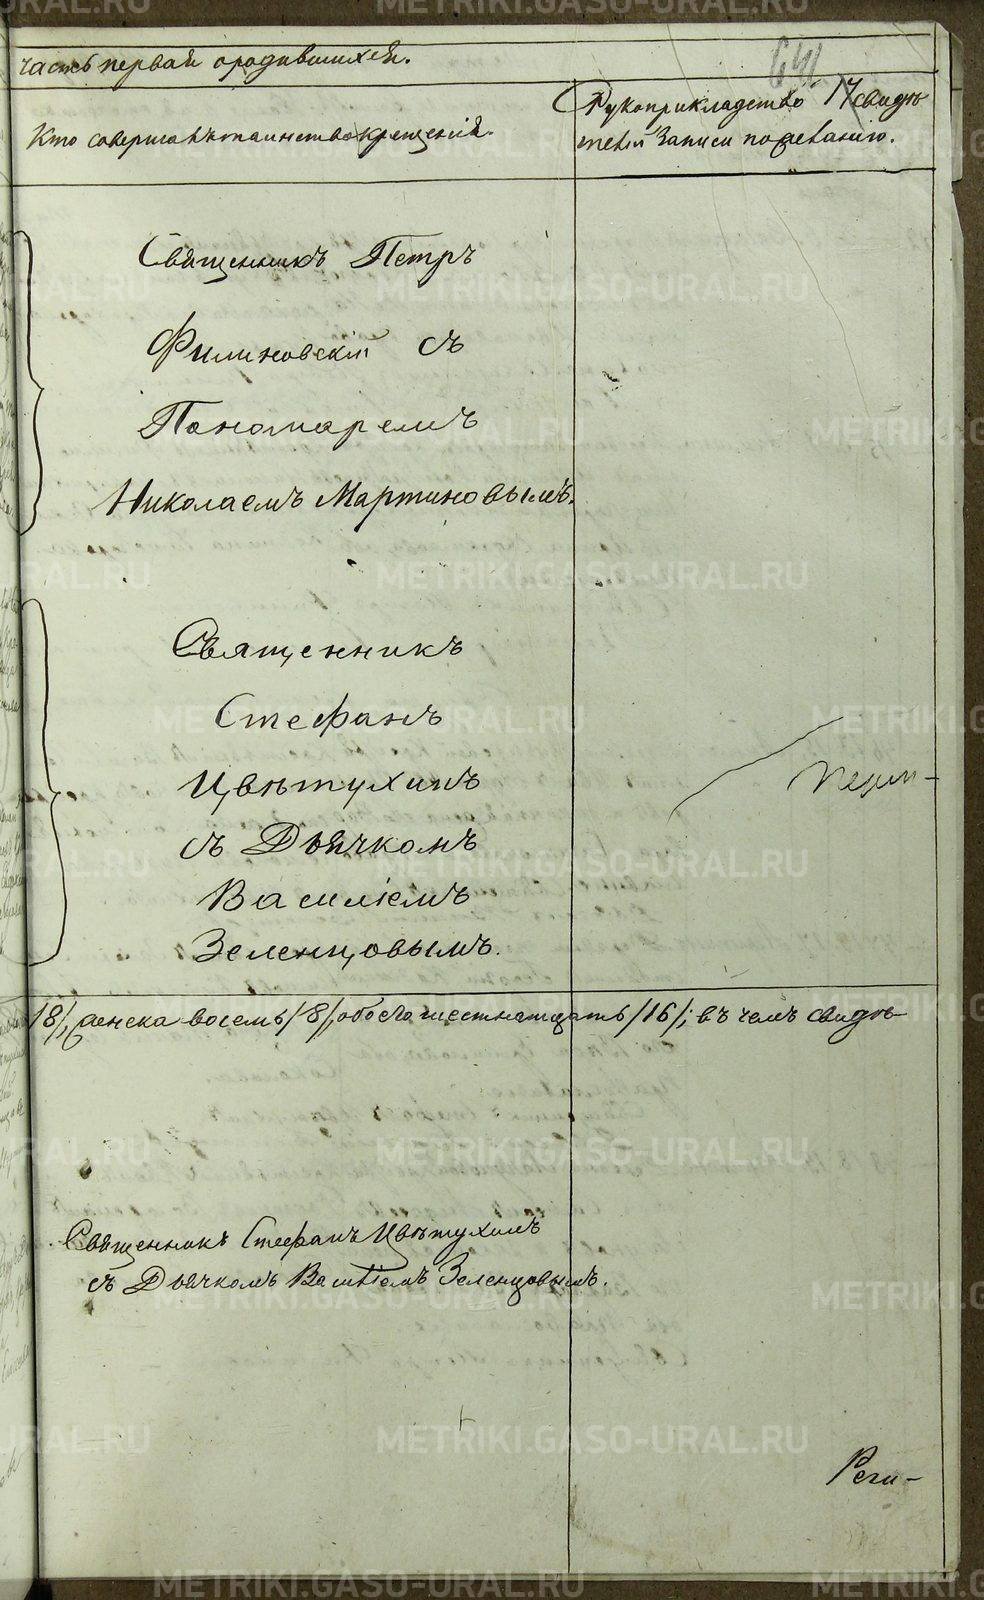 часть первая о родившихся.
641
17
Кто совершалъ таинство крещенія.
Рукоприкладство свидѣ
телей записи по желанію.
Священникъ Петръ
Филиновскій съ
Пономаремъ
Николаемъ Мартиновымъ.
Священникъ
Стефанъ
Цвѣтухинъ
съ Дьячкомъ
Василіемъ
Зеленцовымъ.
/8/, женска восемь /8/, обоего шестнатцать /16/; въ чемъ свидѣ-
Священникъ Стефанъ Цвѣтухинъ
съ Дьячкомъ Василіемъ Зеленцовымъ.
Реги-
METRIKI.GASO-URAL.RU